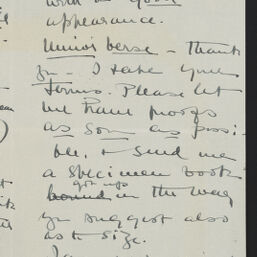 with a good
appearance.
verse – Thank
you – I take your
terms. Please let
me have proofs
as soon as possi-
ble, & send me
a specimen book
got up
bound in the way
you suggest also
as to size.